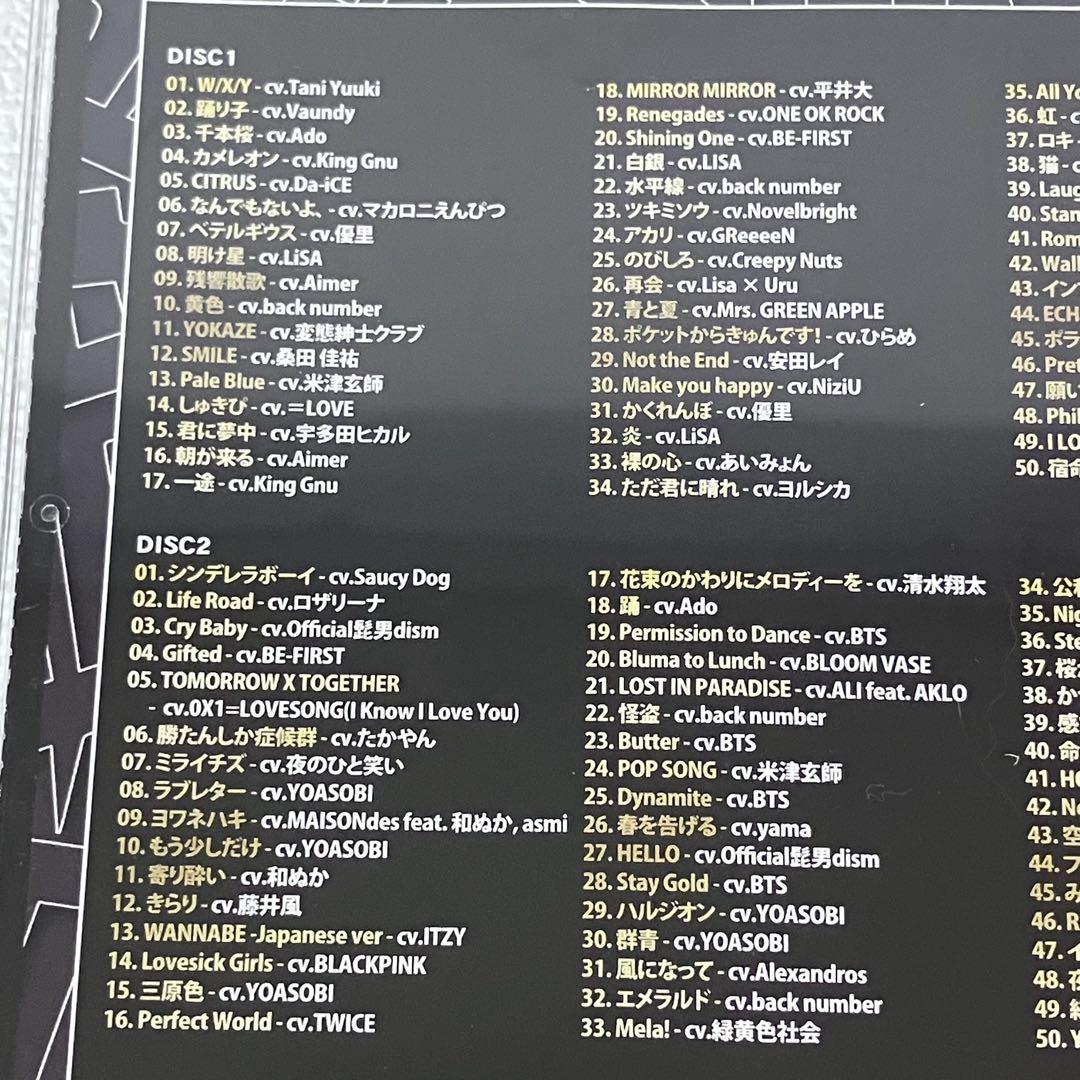 DISC1
01. W/X/Y - cv.Tani Yuuki
02. 踊り子 - cv.Vaundy
03. 千本桜 - cv.Ado
04. カメレオン - cv.King Gnu
05. CITRUS - cv.Da-iCE
06. なんでもないよ、 - cv.マカロニえんぴつ
07. ベテルギウス - cv.優里
08. 明け星 - cv.LiSA
09. 残響散歌 - cv.Aimer
10. 黄色 - cv.back number
11. YOKAZE - cv.変態紳士クラブ
12. SMILE - cv.桑田 佳祐
13. Pale Blue - cv.米津玄師
14. しゅきぴ - cv.=LOVE
15. 君に夢中 - cv.宇多田ヒカル
16. 朝が来る - cv.Aimer
17. 一途 - cv.King Gnu
18. MIRROR MIRROR - cv.平井大
19. Renegades - cv.ONE OK ROCK
20. Shining One - cv.BE-FIRST
21. 白銀 - cv.LISA
22. 水平線 - cv.back number
23. ツキミソウ - cv.Novelbright
24. アカリ - cv.GReeeeN
25. のびしろ - cv.Creepy Nuts
26. 再会 - cv.Lisa × Uru
27. 青と夏 - cv.Mrs. GREEN APPLE
28. ポケットからきゅんです! - cv.ひらめ
29. Not the End - cv.安田レイ
30. Make you happy - cv.NiziU
31. かくれんぼ - cv.優里
32. 炎 - cv.LiSA
33. 裸の心 - cv.あいみょん
34. ただ君に晴れ - cv.ヨルシカ
35. All
36. 虹 -
37. ロキ -
38. 猫 -
39.
40.
41.
42.
43.
44.
45.
46.
47.
48.
49. I
50.
DISC2
01. シンデレラボーイ - cv.Saucy Dog
02. Life Road - cv.ロザリーナ
03. Cry Baby - cv.Official髭男dism
04. Gifted - cv.BE-FIRST
05. TOMORROW X TOGETHER
- cv.0X1=LOVESONG(I Know I Love You)
06. 勝たんしか症候群 - cv.たかやん
07. ミライチズ - cv.夜のひと笑い
08. ラブレター - cv.YOASOBI
09. ヨワネハキ - cv.MAISONdes feat. 和ぬか, asmi
10. もう少しだけ - cv.YOASOBI
11. 寄り酔い - cv.和ぬか
12. きらり - cv.藤井風
13. WANNABE -Japanese ver - cv.ITZY
14. Lovesick Girls - cv.BLACKPINK
15. 三原色 - cv.YOASOBI
16. Perfect World - cv.TWICE
17. 花束のかわりにメロディーを - cv.清水翔太
18. 踊 - cv.Ado
19. Permission to Dance - cv.BTS
20. Bluma to Lunch - cv.BLOOM VASE
21. LOST IN PARADISE - cv.ALI feat. AKLO
22. 怪盗 - cv.back number
23. Butter - cv.BTS
24. POP SONG - cv.米津玄師
25. Dynamite - cv.BTS
26. 春を告げる - cv.yama
27. HELLO - cv.Official髭男dism
28. Stay Gold - cv.BTS
29. ハルジオン - cv.YOASOBI
30. 群青 - cv.YOASOBI
31. 風になって - cv.Alexandros
32. エメラルド - cv.back number
33. Mela! - cv.緑黄色社会
34.
35.
36.
37.
38.
39.
40.
41.
42.
43.
44.
45.
46.
47.
48.
49.
50.